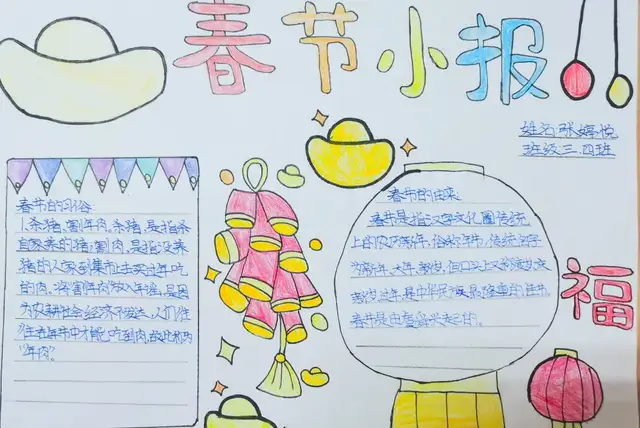 春节小报
姓名张婷悦
班级三.四班
春节的习俗
1.杀猪,割年肉。杀猪,是指杀
自家养的猪;割肉,是指没养
猪的人家到集市去买过年吃
的肉。将割年肉放入年谣,是因
为农耕社会经济不发达,人们往
往在年节中才能吃到肉,故此称为
“年肉”。
春节的由来
春节是指汉字文化圈传统
上的农历新年,俗称年节,传统名字
为新年、大年、新岁,但口头上又称度岁、庆
新岁、过年,是中华民族最隆重的佳节。
春节是由虞舜兴起的。
福